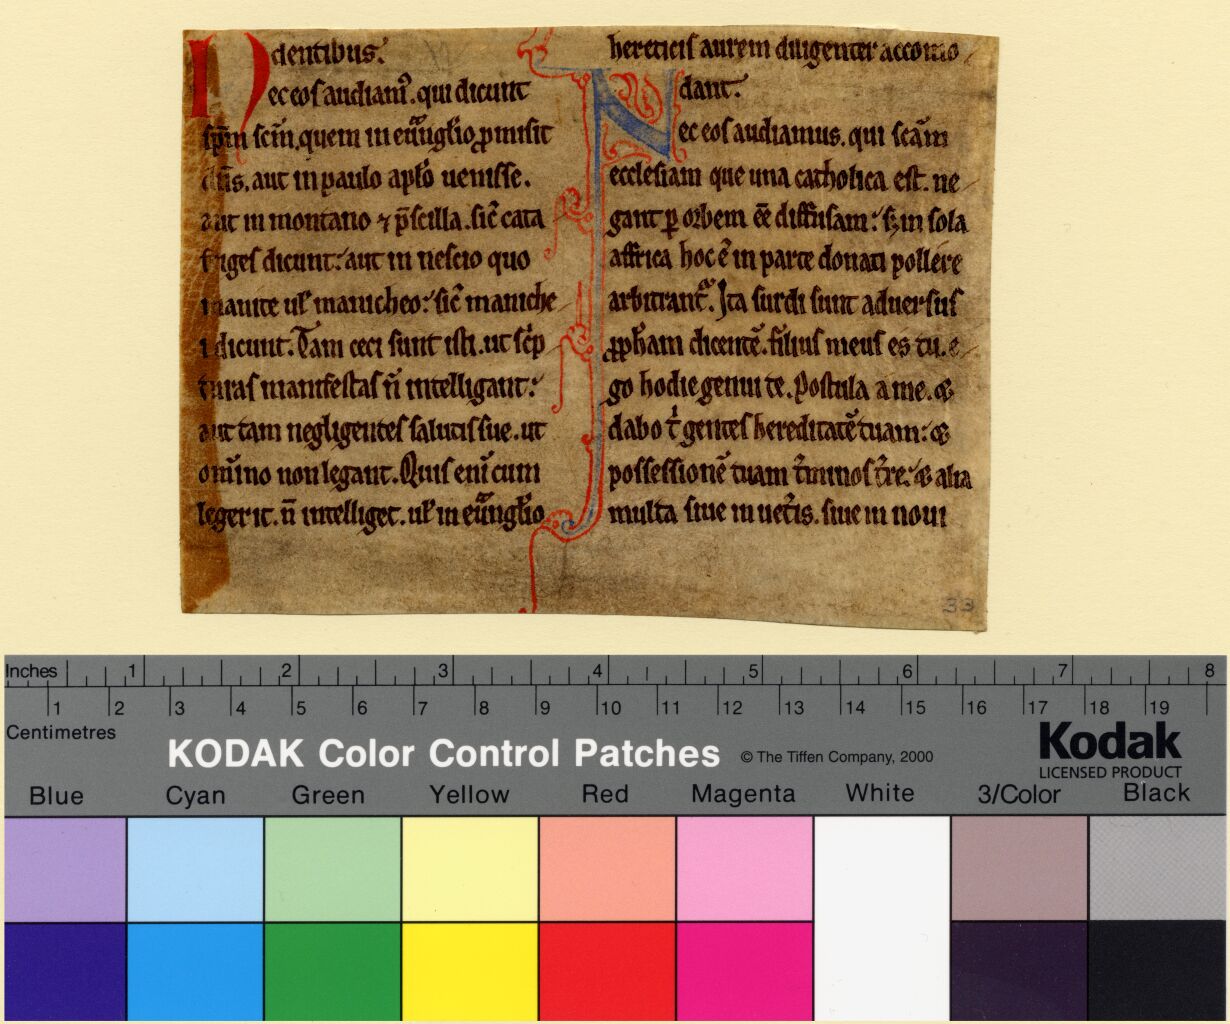 dentibus.
Nec eos audiam᷒. qui dicunt
sp̅m sc̅m, quem in euãnglio ꝓmisit
dn̅s, aut in paulo apl̅o uenisse.
aut in montano ⁊ p̅scilla. sic̅ cata
friges dicunt: aut in nescio quo
manite ul̅ manicheo: sic̅ maniche
i dicunt. Tam ceci sunt isti. ut sc̅p
turas manifestas n̅ intelligant:
aut tam negligentes salutis sue. ut
om̅ino non legant. Quis eni̅ cum
legerit. n̅ intelliget. ul̅ in euãnglio
hereticis aurem diligenter accomo-
dant.
Nec eos audiamus. qui sc̅am
ecclesiam que una catholica est. ne-
gant ꝑ orbem ee̅ diffusam: s; in sola
affrica hoc e̅ in parte donati pollere
arbitrant᷒. Ita surdi sunt aduersus
ꝓph̅am dicente̅. filius meus es tu. e-
go hodie genui te. Postula a me. &
dabo t̅ gentes hereditate̅ tuam: &
possessione̅ tuam t̅minos t̅re: & alia
multa siue in uet̅is. siue in noui
33
Inches 1 2 3 4 5 6 7 8
1 2 3 4 5 6 7 8 9 10 11 12 13 14 15 16 17 18 19
Centimetres
KODAK Color Control Patches © The Tiffen Company, 2000
Kodak
LICENSED PRODUCT
Blue Cyan Green Yellow Red Magenta White 3/Color Black